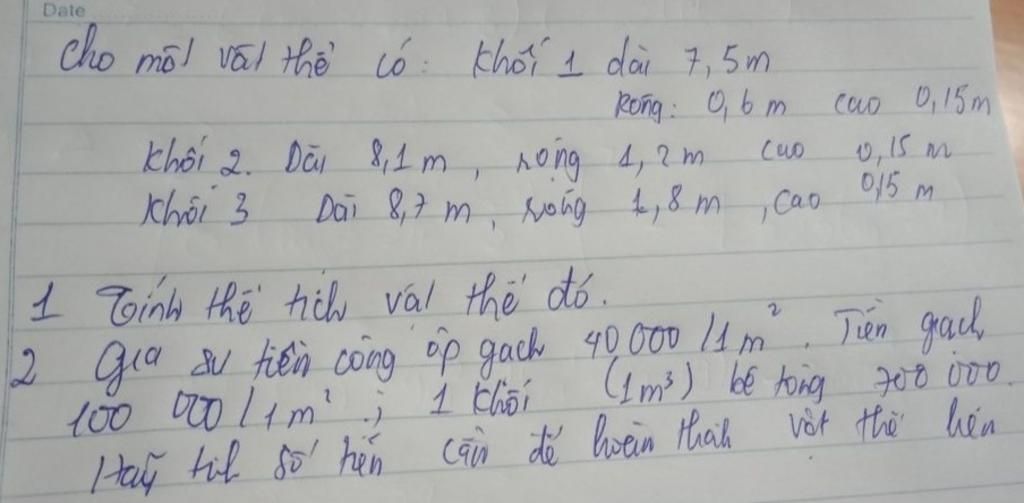 Date
Cho một vật thể có: Khối 1 dài 7,5m
Rộng: 0,6 m cao 0,15m
Khối 2. Dài 8,1 m, rộng 1,2 m cao 0,15 m
Khối 3 Dài 8,7 m, rộng 1,8 m, cao 0,15 m
1 Tính thể tích vật thể đó.
2 Giả sử tiền công ốp gạch 40 000 / 1 m². Tiền gạch
100 000 / 1 m²; 1 khối (1m³) bê tông 700 000.
Hãy tính số tiền cần để hoàn thành vật thể trên